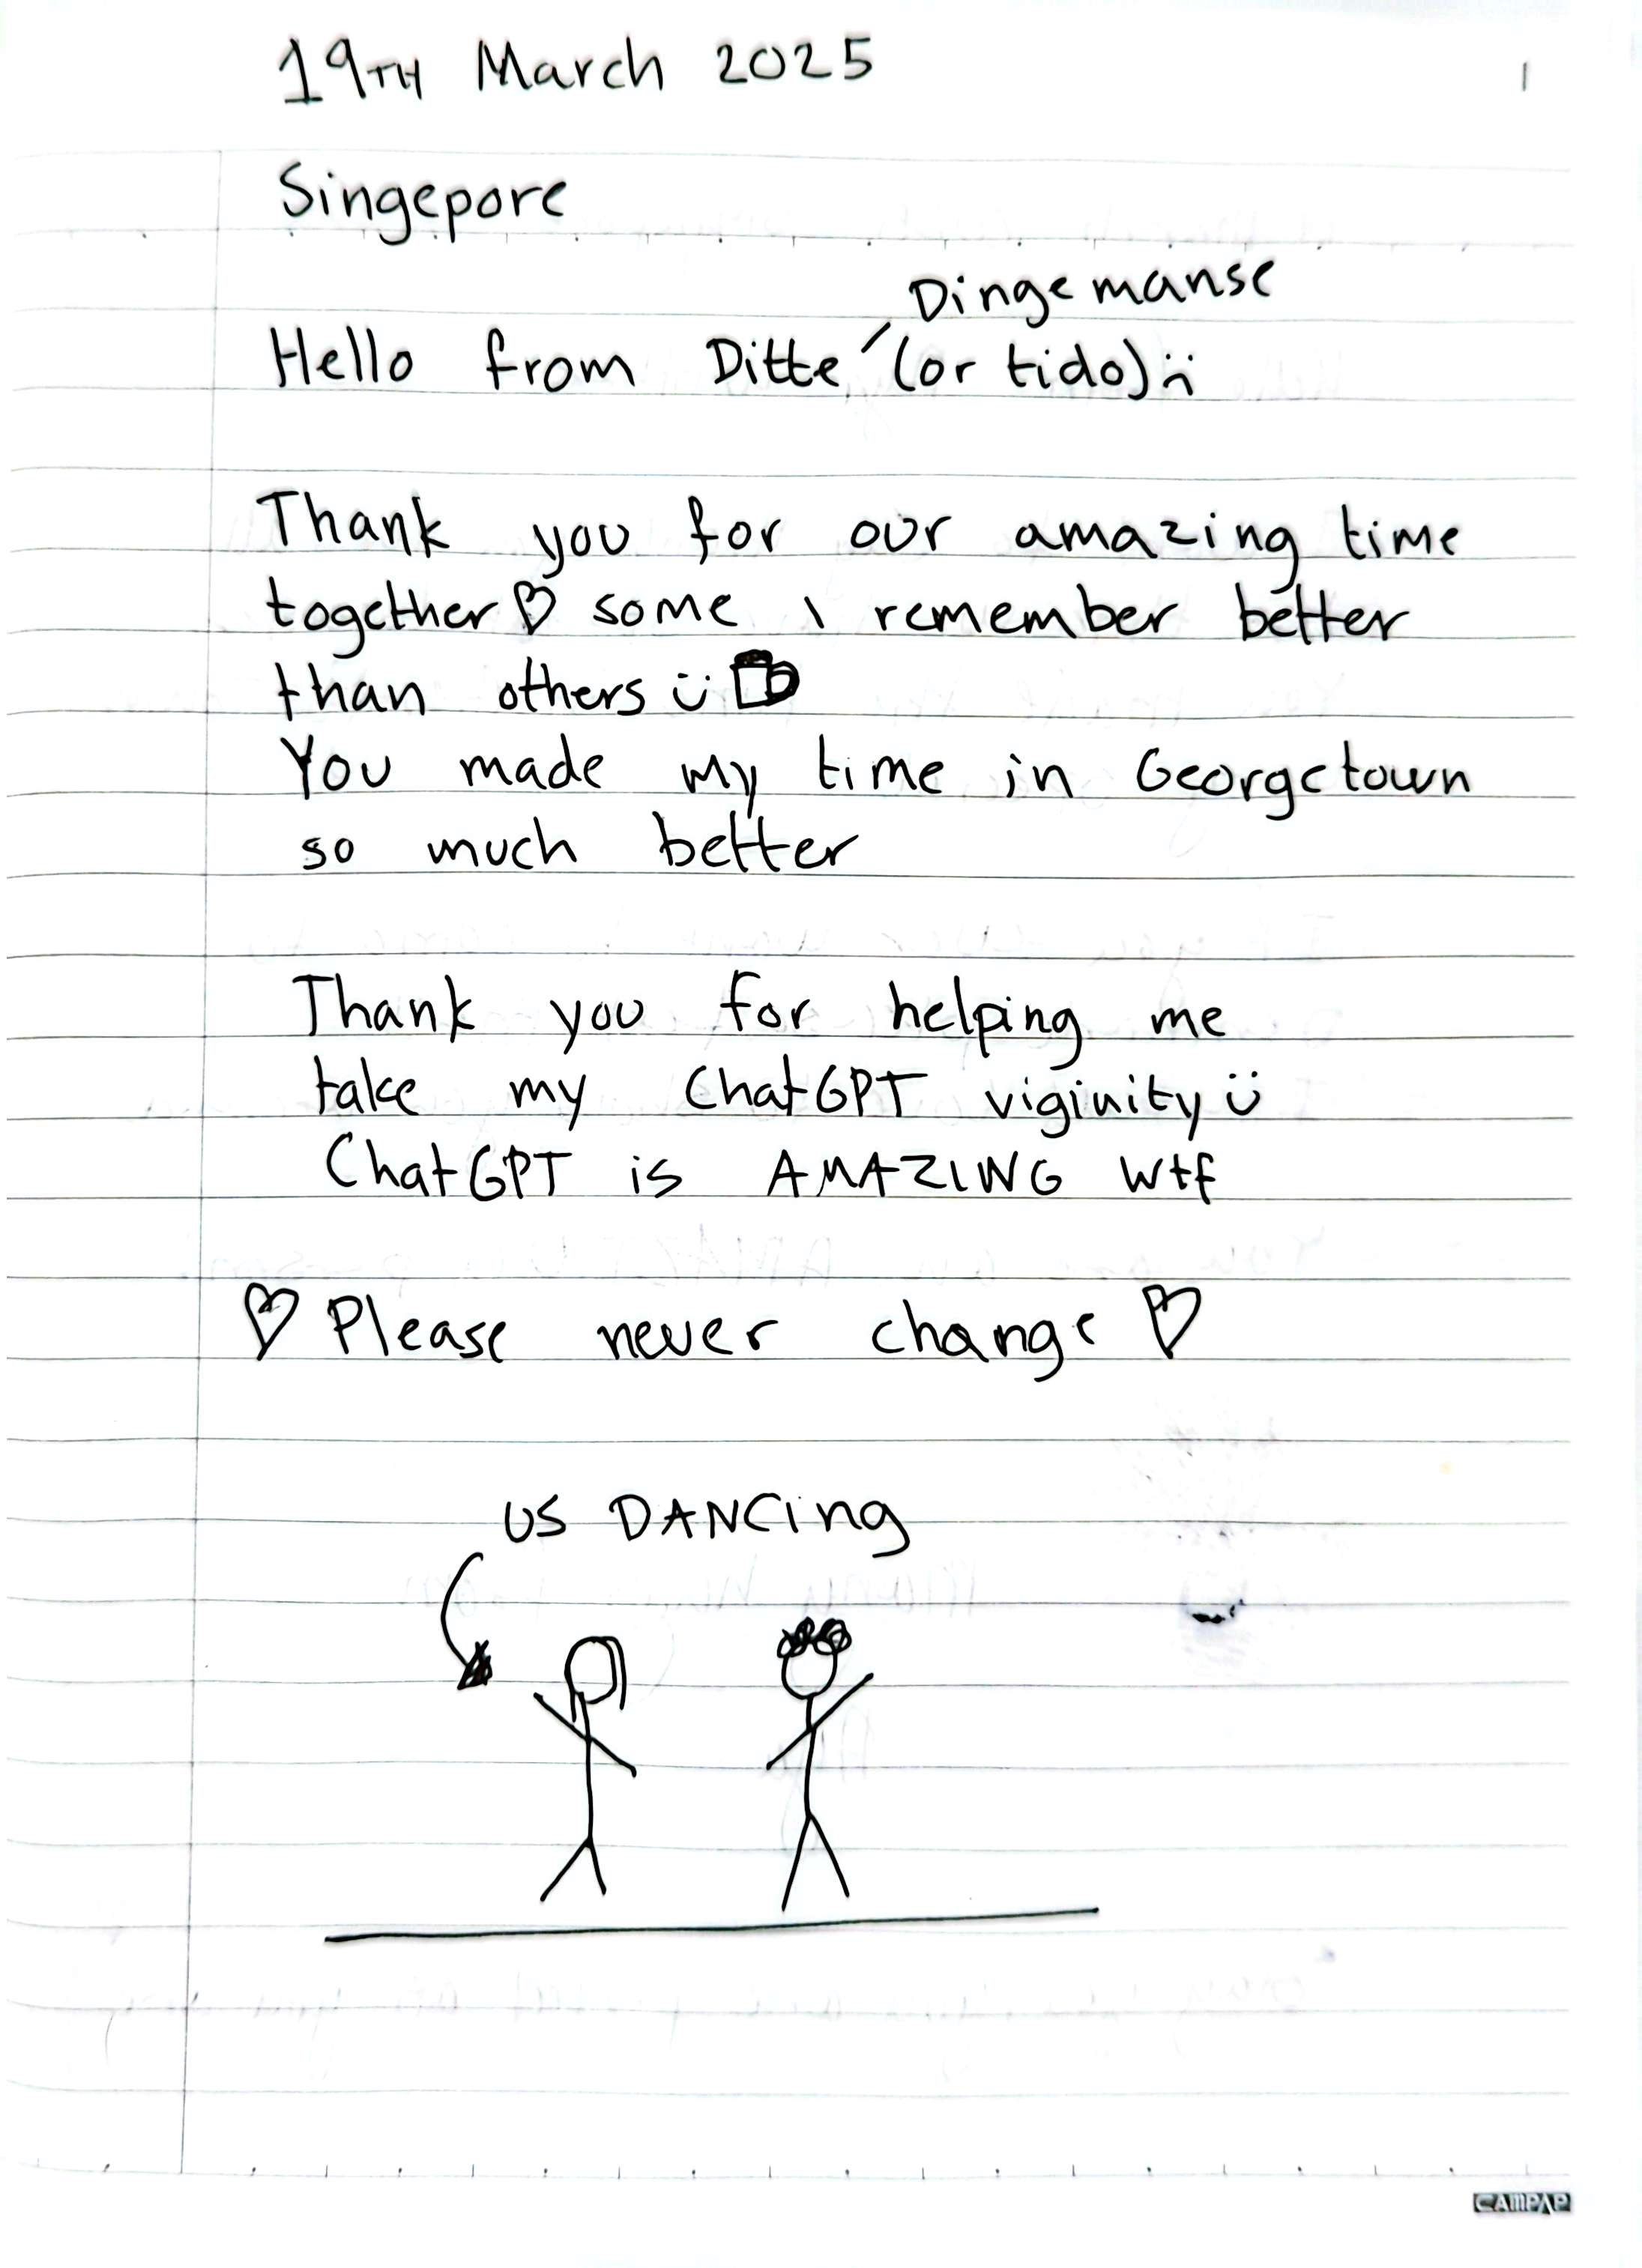 19TH March 2025
1
Singepore
Dingemanse
Hello from Ditte (or tido) :(
Thank you for our amazing time
together ♡ some I remember better
than others :)
You made my time in Georgetown
so much better
Thank you for helping me
take my ChatGPT viginity :)
ChatGPT is AMAZING wtf
♡ Please never change ♡
US DANCing
CAMPAP